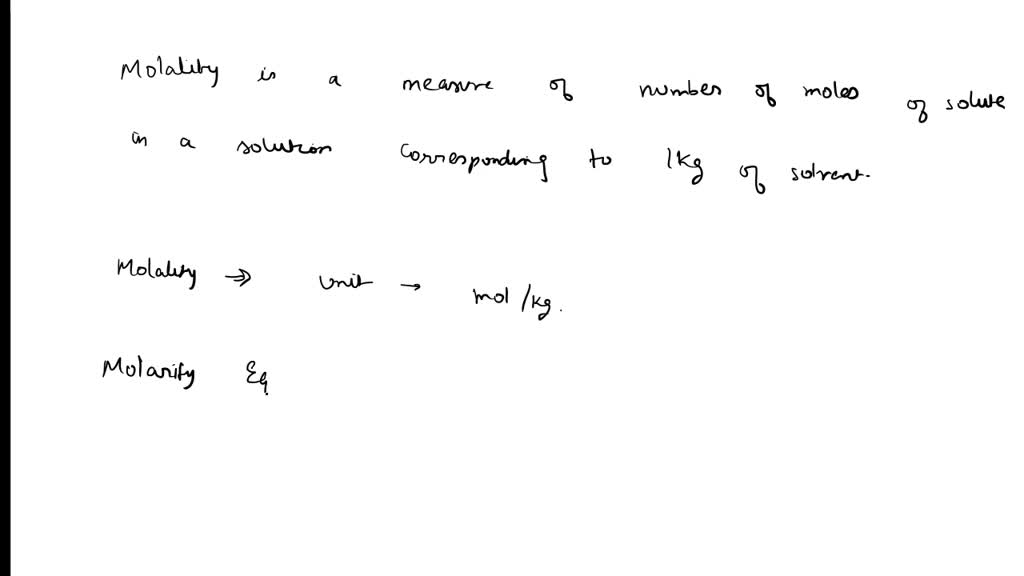 Molality is a measure of number of moles of solute
in a solution corresponding to 1kg of solvent.
Molality ⇒ unit → mol/kg.
Molarity Eq